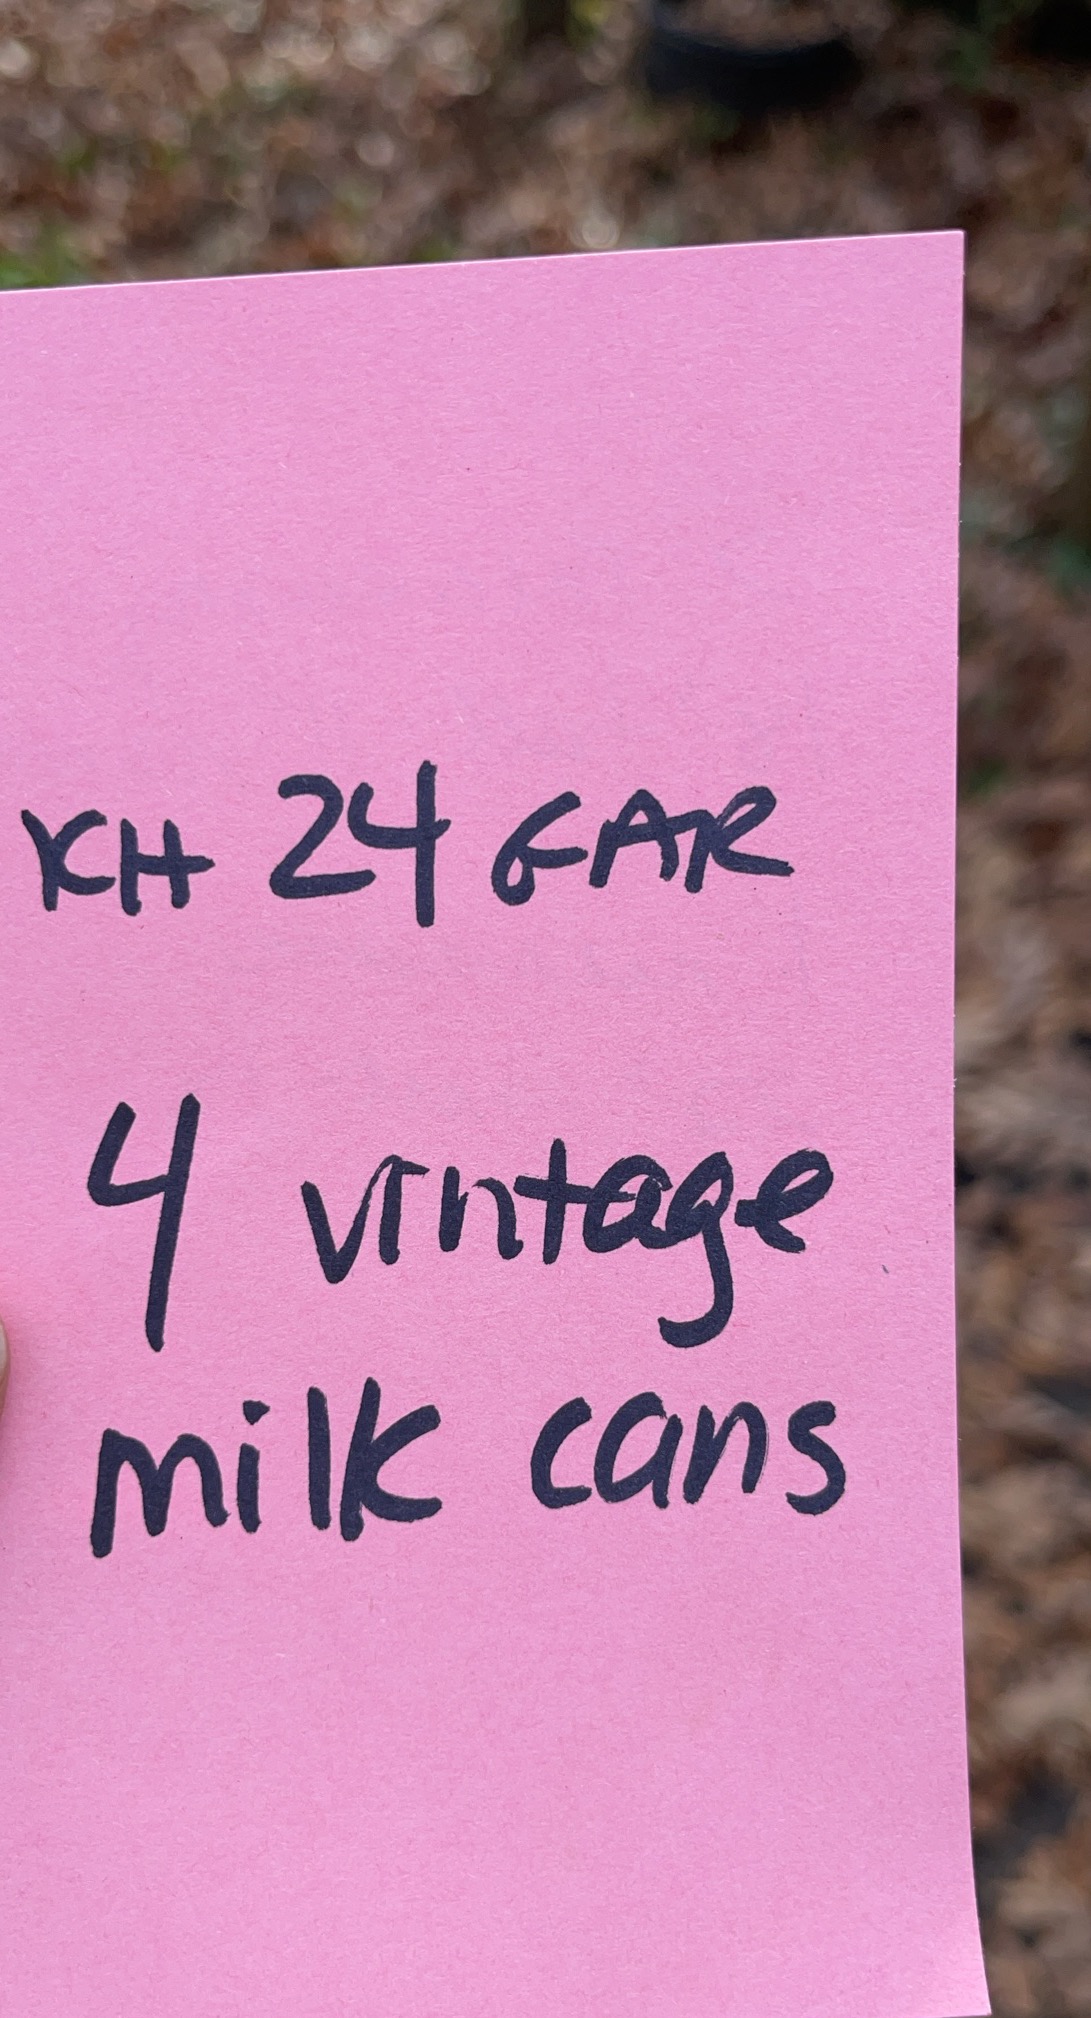 KH 24 GAR
4 vintage
milk cans